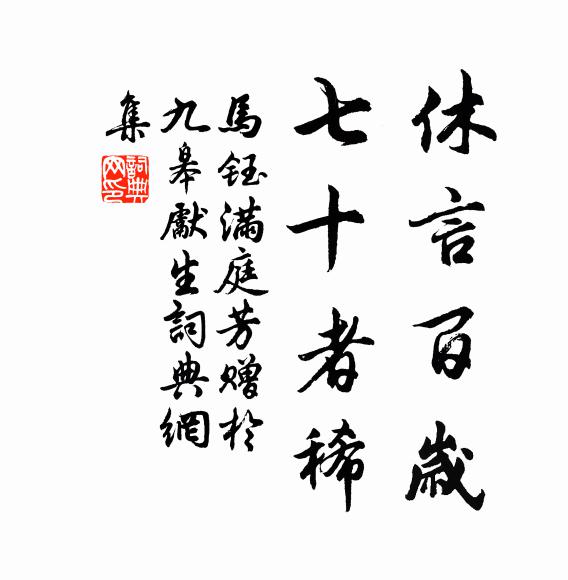 休言百歲
七十者稀
馬鈺滿庭芳贈於
九皋獻生詞典網
集
詞典
网印